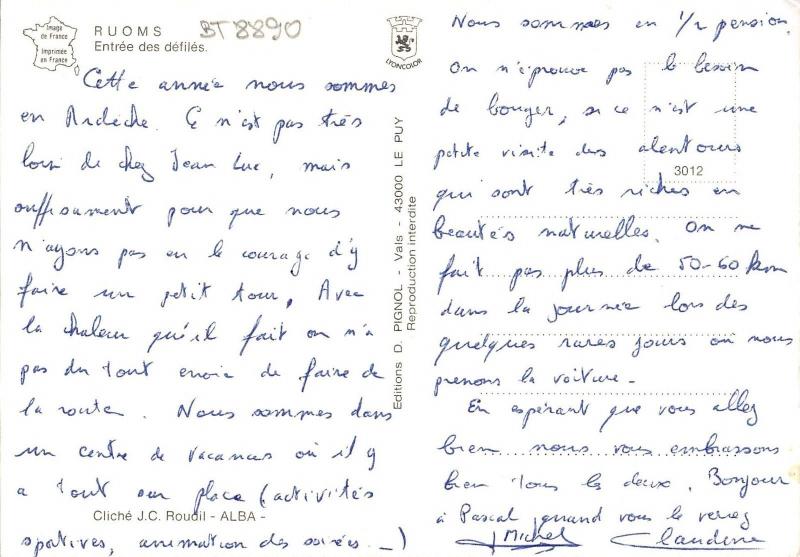 Image
de France
Imprimée
en France
RUOMS
Entrée des défilés.
BT 8890
LYONCOLOR
Cette année nous sommes
en Ardèche. Ce n'est pas très
loin de chez Jean Luc, mais
suffisamment pour que nous
n'ayons pas eu le courage d'y
faire un petit tour. Avec
la chaleur qu'il fait on n'a
pas du tout envie de faire de
la route. Nous sommes dans
un centre de vacances où il y
a tout sur place (activités
sportives, animation des soirées...)
Cliché J.C. Roudil - ALBA -
Editions D. PIGNOL - Vals - 43000 LE PUY
Reproduction interdite
Nous sommes en 1/2 pension.
On n'éprouve pas le besoin
de bouger, si ce n'est une
petite visite des alentours
3012
qui sont très riches en
beautés naturelles. On ne
fait pas plus de 50-60 km
dans la journée lors des
quelques rares jours où nous
prenons la voiture -
En espérant que vous allez
bien nous vous embrassons
bien tous les deux. Bonjour
à Pascal quand vous le verrez
Michel Claudine